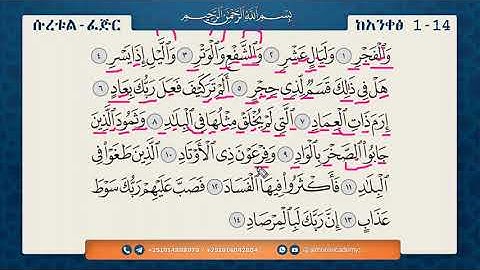 ሱረቱል - ፈጅር
بِسْمِ اللَّهِ الرَّحْمَٰنِ الرَّحِيمِ
ከአንቀፅ 1-14
وَالْفَجْرِ ١ وَلَيَالٍ عَشْرٍ ٢ وَالشَّفْعِ وَالْوَتْرِ ٣ وَاللَّيْلِ إِذَا يَسْرِ ٤
هَلْ فِي ذَٰلِكَ قَسَمٌ لِّذِي حِجْرٍ ٥ أَلَمْ تَرَ كَيْفَ فَعَلَ رَبُّكَ بِعَادٍ ٦
إِرَمَ ذَاتِ الْعِمَادِ ٧ الَّتِي لَمْ يُخْلَقْ مِثْلُهَا فِي الْبِلَادِ ٨ وَثَمُودَ الَّذِينَ
جَابُوا الصَّخْرَ بِالْوَادِ ٩ وَفِرْعَوْنَ ذِي الْأَوْتَادِ ١٠ الَّذِينَ طَغَوْا فِي
الْبِلَادِ ١١ فَأَكْثَرُوا فِيهَا الْفَسَادَ ١٢ فَصَبَّ عَلَيْهِمْ رَبُّكَ سَوْطَ
عَذَابٍ ١٣ إِنَّ رَبَّكَ لَبِالْمِرْصَادِ ١٤